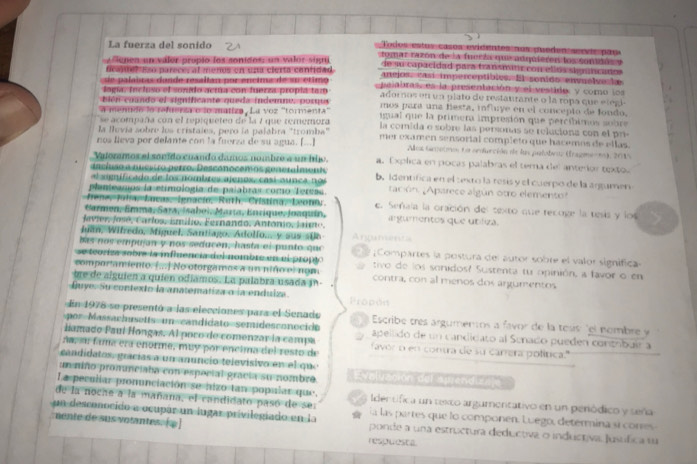 La fuerza del sonido
¿Tienen un valor propio los sonidos, un valor signi-
ficante? Eso parece; al menos en una cierta cantidad
de palabras donde resaltan por encima de su etimo-
logía. Incluso el sonido actúa con fuerza propia tam-
bién cuando el significante queda indemne, porque
a menudo lo refuerza o lo matiza. La voz "tormenta"
se acompaña con el repiqueteo de la r que rememora
la lluvia sobre los cristales, pero la palabra "tromba"
nos lleva por delante con la fuerza de su agua. [...]
Valoramos el sonido cuando damos nombre a un hijo,
incluso a nuestro perro. Desconocemos generalmente
el significado de los nombres ajenos, casi nunca nos
planteamos la etimología de palabras como Teresa,
Irene, Julia, Lucas, Ignacio, Ruth, Cristina, Leonor,
Carmen, Emma, Sara, Isabel, Marta, Enrique, Joaquín,
Javier, José, Carlos, Emilio, Fernando, Antonio, Jaime,
Juan, Wifredo, Miguel, Santiago, Adolfo... y sus síla-
bas nos empujan y nos seducen, hasta el punto que
se teoriza sobre la influencia del nombre en el propio
comportamiento. [...] No otorgamos a un niño el nom-
bre de alguien a quien odiamos. La palabra usada in-
fluye. Su contexto la anatematiza o la endulza.
En 1978 se presentó a las elecciones para el Senado
por Massachusetts un candidato semidesconocido
llamado Paul Hongas. Al poco de comenzar la campa-
ña, su fama era enorme, muy por encima del resto de
candidatos, gracias a un anuncio televisivo en el que
un niño pronunciaba con especial gracia su nombre.
La peculiar pronunciación se hizo tan popular que,
de la noche a la mañana, el candidato pasó de ser
un desconocido a ocupar un lugar privilegiado en la
mente de sus votantes. [...]
Todos estos casos evidentes nos pueden servir para
tomar razón de la fuerza que adquieren los sonidos y
de su capacidad para transmitir con ellos significados
anejos, casi imperceptibles. El sonido envuelve las
palabras, es la presentación y el vestido, y como los
adornos en un plato de restaurante o la ropa que elegi-
mos para una fiesta, influye en el concepto de fondo,
igual que la primera impresión que percibimos sobre
la comida o sobre las personas se relaciona con el pri-
mer examen sensorial completo que hacemos de ellas.
Álex Grijelmo: La seducción de las palabras (fragmento), 2015
a. Explica en pocas palabras el tema del anterior texto.
b. Identifica en el texto la tesis y el cuerpo de la argumen-
tación. ¿Aparece algún otro elemento?
c. Señala la oración del texto que recoge la tesis y los
argumentos que utiliza.
Argumenta
¿Compartes la postura del autor sobre el valor significa-
tivo de los sonidos? Sustenta tu opinión, a favor o en
contra, con al menos dos argumentos.
Propón
Escribe tres argumentos a favor de la tesis "el nombre y
apellido de un candidato al Senado pueden contribuir a
favor o en contra de su carrera política."
Evaluación del aprendizaje
Identifica un texto argumentativo en un periódico y seña-
la las partes que lo componen. Luego, determina si corres-
ponde a una estructura deductiva o inductiva. Justifica tu
respuesta.